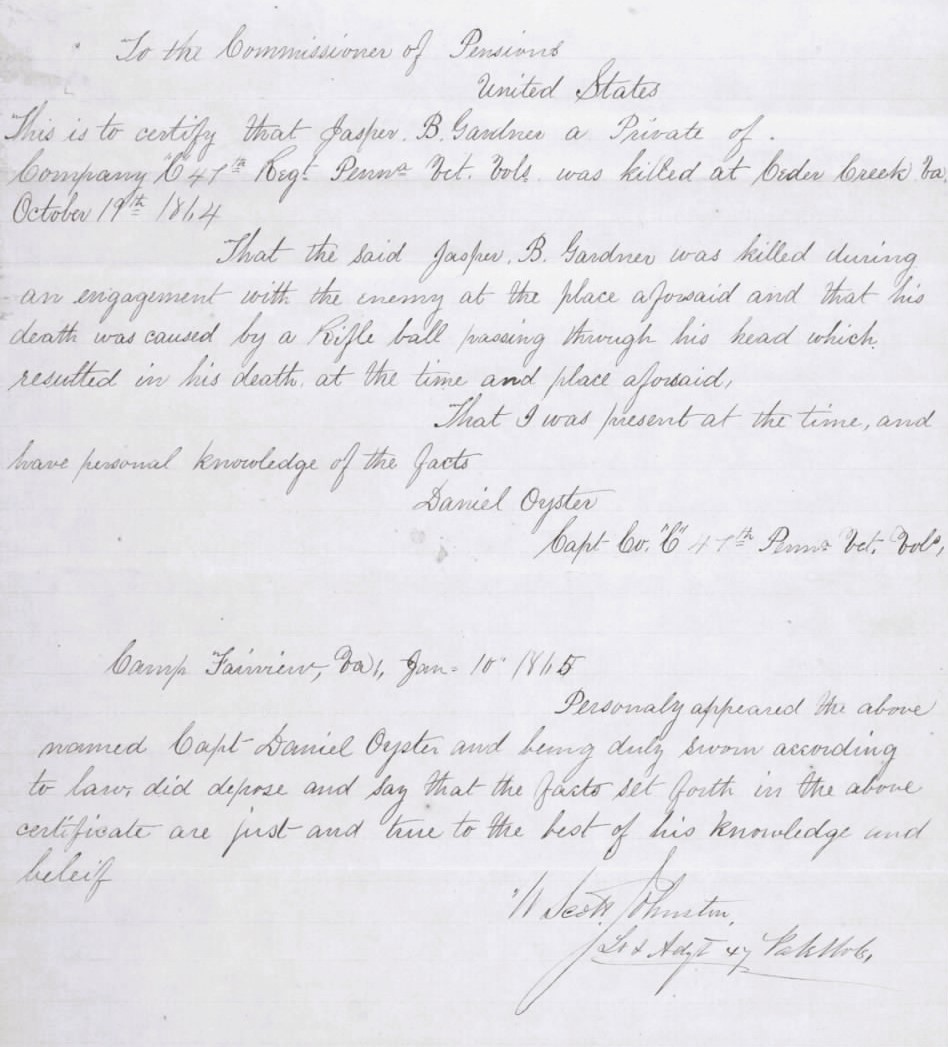 To the Commissioner of Pensions
United States
This is to certify that Jasper. B. Gardner a Private of.
Company "C" 47th Regt Penna Vet. Vols. was killed at Ceder Creek Va.
October 19th 1864
That the said Jasper. B. Gardner was killed during
an engagement with the enemy at the place aforsaid and that his
death was caused by a Rifle ball passing through his head which
resulted in his death at the time and place aforsaid,
That I was present at the time, and
have personal knowledge of the facts
Daniel Oyster
Capt Co. "C" 47th Penna Vet. Vols,
Camp Fairview, Va, Jan= 10" 1865
Personaly appeared the above
named Capt Daniel Oyster and being duly sworn according
to law, did depose and say that the facts set forth in the above
certificate are just and true to the best of his knowledge and
beleif
W Scott Johnston,
Lt & Adgt 47